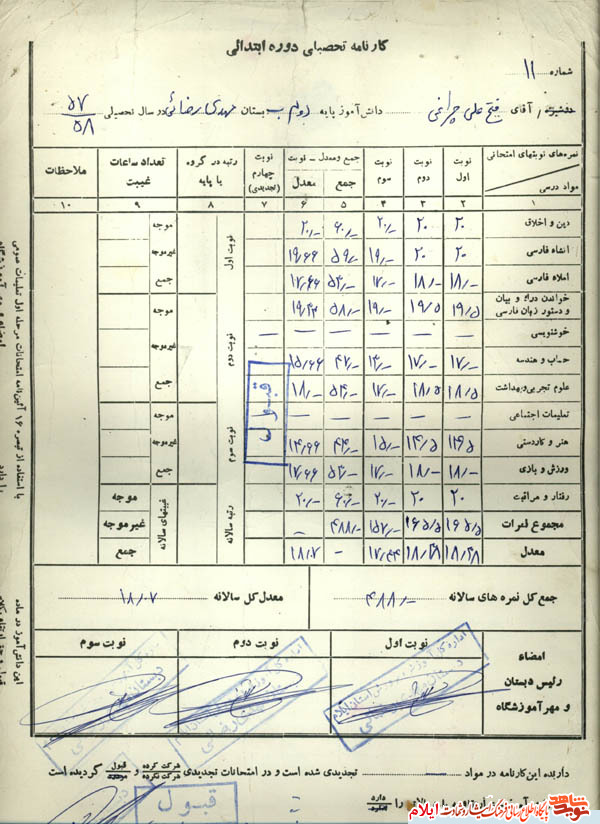 کارنامه تحصیلی دوره ابتدائی
شماره ۱۱
دوشیزه / آقای فتح علی چراغی دانش آموز پایه دوم ب دبستان مهدی رضائی در سال تحصیلی ۵۷/۵۸
نمره‌های نوبتهای امتحانی مواد درسی | نوبت اول | نوبت دوم | نوبت سوم | جمع و معدل ۳ نوبت جمع معدل | نوبت چهارم (تجدیدی) | رتبه در گروه یا پایه | تعداد ساعات غیبت | ملاحظات
۱ ۲ ۳ ۴ ۵ ۶ ۷ ۸ ۹ ۱۰
دین و اخلاق ۲۰ ۲۰ ۲۰/- ۶۰/- ۲۰/- نوبت اول موجه
انشاء فارسی ۲۰ ۲۰ ۱۹/- ۵۹/- ۱۹/۶۶ غیرموجه
املاء فارسی ۱۸/- ۱۸/- ۱۷/- ۵۳/- ۱۷/۶۶ جمع
خواندن درک و بیان و دستور زبان فارسی ۱۹/۵ ۱۹/۵ ۱۹/- ۵۸/- ۱۹/۳۳ نوبت دوم موجه
خوشنویسی — — — — —
حساب و هندسه ۱۷/- ۱۷/- ۱۳/- ۴۷/- ۱۵/۶۶ غیرموجه
علوم تجربی و بهداشت ۱۸/۵ ۱۸/۵ ۱۷/- ۵۴/- ۱۸/- جمع
قبول
تعلیمات اجتماعی — — — — — نوبت سوم موجه
هنر و کاردستی ۱۴/۵ ۱۴/۵ ۱۵/- ۴۴/- ۱۴/۶۶ غیرموجه
ورزش و بازی ۱۸/- ۱۸/- ۱۷/- ۵۳/- ۱۷/۶۶ جمع
رفتار و مراقبت ۲۰ ۲۰ ۲۰/- ۶۰/- ۲۰/- رتبه سالانه غیبتهای سالانه موجه
مجموع نمرات ۱۶۵/۵ ۱۶۵/۵ ۱۵۷/- ۴۸۸/- غیرموجه
معدل ۱۸/۳۸ ۱۸/۳۸ ۱۷/۴۴ - ۱۸/۰۷ جمع
جمع کل نمره های سالانه ۴۸۸/- معدل کل سالانه ۱۸/۰۷
امضاء رئیس دبستان و مهر آموزشگاه
نوبت اول نوبت دوم نوبت سوم
دارنده این کارنامه در مواد — تجدیدی شده است و در امتحانات تجدیدی شرکت کرده / شرکت نکرده و قبول / مردود گردیده است
را دارد / ندارد
قبول
با استفاده از تبصره ۱۶ آئین‌نامه امتحانات مرحله اول تعلیمات عمومی
این دانش آموز در ماده
نوید شاهد پایگاه اطلاع رسانی فرهنگ ایثار و شهادت ایلام